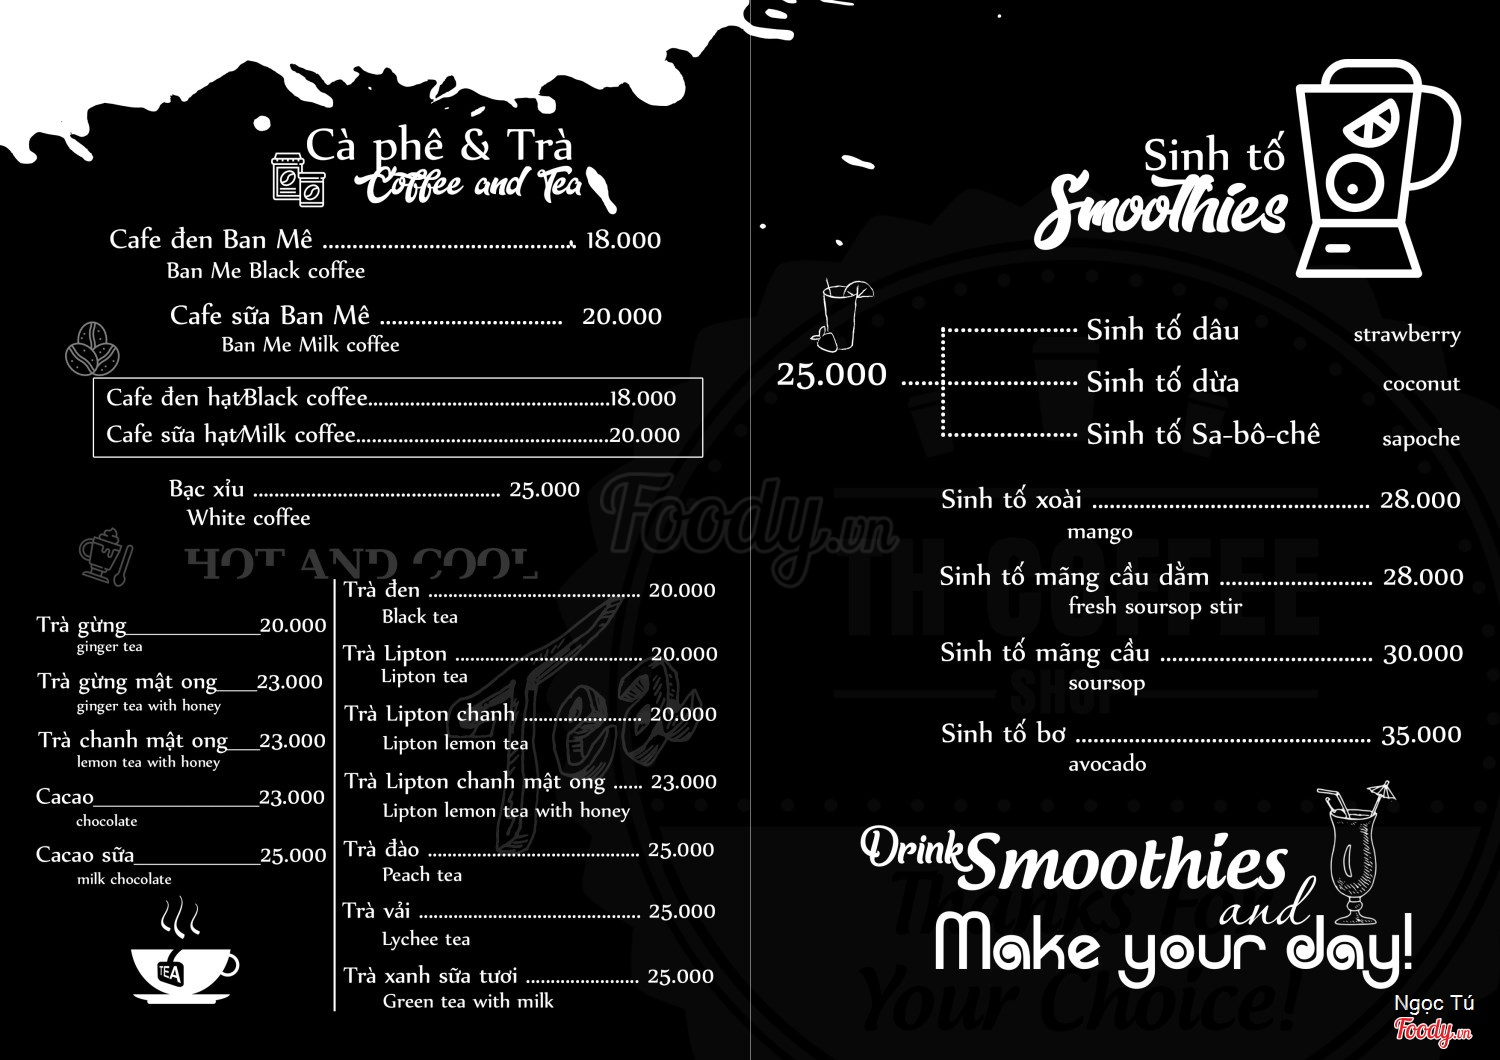 Cà phê & Trà
Coffee and Tea
Cafe đen Ban Mê ........................................... 18.000
Ban Me Black coffee
Cafe sữa Ban Mê ............................... 20.000
Ban Me Milk coffee
Cafe đen hạt/Black coffee.........................................18.000
Cafe sữa hạt/Milk coffee...........................................20.000
Bạc xỉu .......................................... 25.000
White coffee
HOT AND COOL
Trà gừng____________20.000
ginger tea
Trà gừng mật ong____23.000
ginger tea with honey
Trà chanh mật ong___23.000
lemon tea with honey
Cacao_______________23.000
chocolate
Cacao sữa___________25.000
milk chocolate
TEA
Tea
Trà đen ..................................... 20.000
Black tea
Trà Lipton ................................ 20.000
Lipton tea
Trà Lipton chanh .................... 20.000
Lipton lemon tea
Trà Lipton chanh mật ong ...... 23.000
Lipton lemon tea with honey
Trà đào .................................... 25.000
Peach tea
Trà vải ...................................... 25.000
Lychee tea
Trà xanh sữa tươi .................... 25.000
Green tea with milk
Sinh tố
Smoothies
25.000
Sinh tố dâu strawberry
Sinh tố dừa coconut
Sinh tố Sa-bô-chê sapoche
Sinh tố xoài ............................................... 28.000
mango
Sinh tố mãng cầu dằm .......................... 28.000
fresh soursop stir
Sinh tố mãng cầu .................................... 30.000
soursop
Sinh tố bơ .................................................. 35.000
avocado
Foody.vn
TH COFFEE
SHOP
Drink Smoothies
and
Make your day!
Thanks For
Your Choice!
Ngọc Tú
Foody.vn